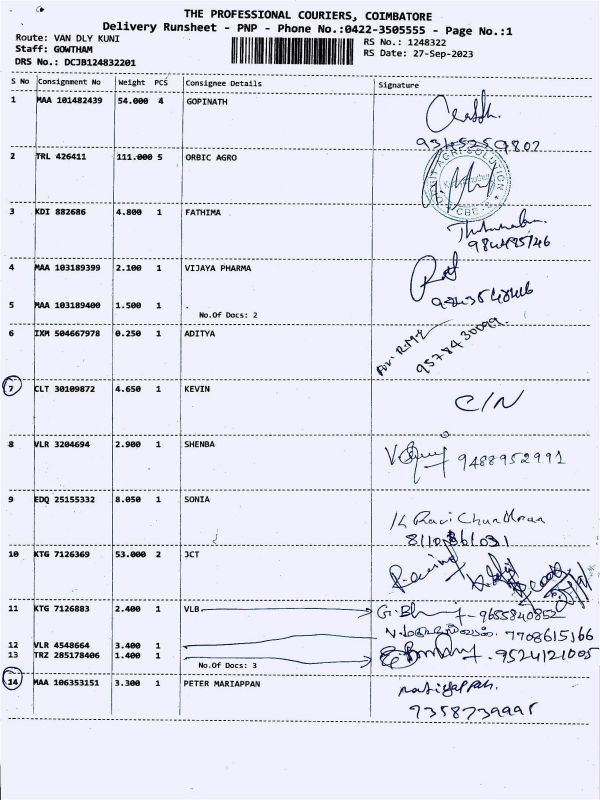 THE PROFESSIONAL COURIERS, COIMBATORE
Delivery Runsheet - PNP - Phone No.:0422-3505555 - Page No.:1
Route: VAN DLY KUNI
RS No.: 1248322
Staff: GOWTHAM
RS Date: 27-Sep-2023
DRS No.: DCJB124832201
S No Consignment No Weight PCS Consignee Details Signature
1 MAA 101482439 54.000 4 GOPINATH
9345259807
2 TRL 426411 111.000 5 ORBIC AGRO
3 KDI 882686 4.800 1 FATHIMA
4 MAA 103189399 2.100 1 VIJAYA PHARMA
5 MAA 103189400 1.500 1 .
No.Of Docs: 2
6 IXM 504667978 0.250 1 ADITYA
9578430099
7 CLT 30109872 4.650 1 KEVIN C/N
8 VLR 3204694 2.900 1 SHENBA 9488952991
9 EDQ 25155332 8.050 1 SONIA
10 KTG 7126369 53.000 2 JCT
11 KTG 7126883 2.400 1 VLB - 9655840852
7708615166
12 VLR 4548664 3.400 1
13 TRZ 285178406 1.400 1 - 9524121005
No.Of Docs: 3
14 MAA 106353151 3.300 1 PETER MARIAPPAN mariyappan
7358739995